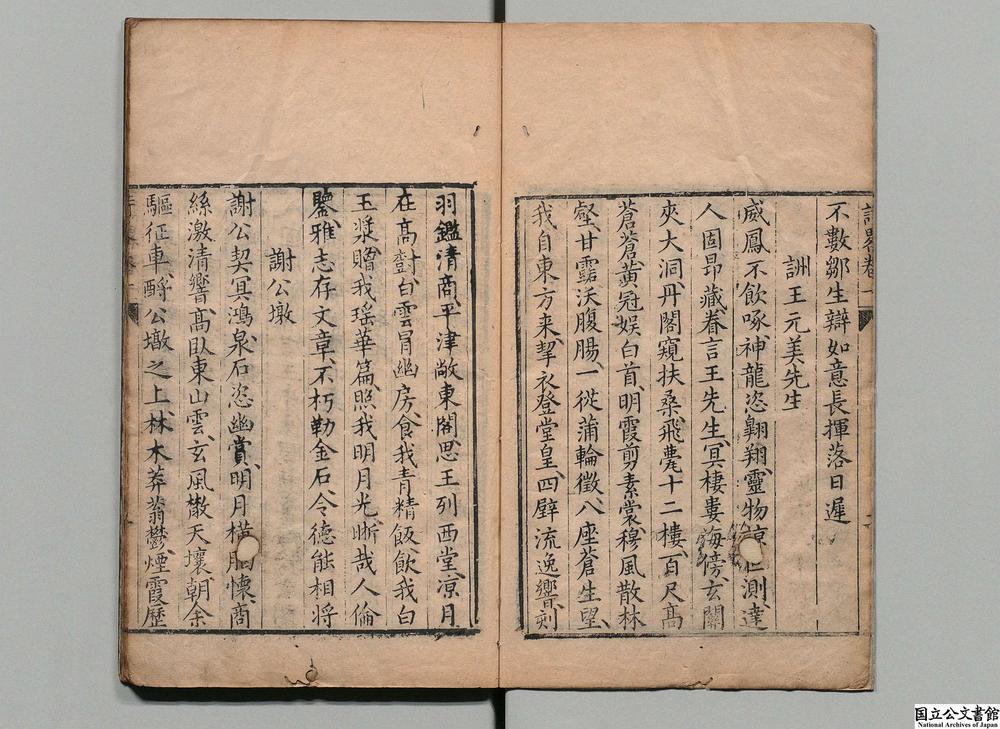 詩畧卷一
不數鄒生辯如意長揮落日遲
訓王元美先生
威鳳不飲啄神龍恣翺翔靈物諒 測達
人固昂藏眷言王先生冥棲婁海傍玄關
夾大洞丹閣窺扶桑飛甍十二樓百尺高
蒼蒼黃冠娭白首明霞剪素裳穆風散林
壑甘露沃腹腸一從蒲輪徵八座蒼生望
我自東方來挈衣登堂皇四壁流逸響刻
羽鑑清商平津敞東閣思王列西堂凉月
在高對白雲冐幽房食我青精飯飲我白
玉漿贈我瑶華篇照我明月光晣哉人倫
鑒雅志存文章不朽勒金石令德能相將
謝公墩
謝公契冥鴻泉石恣幽賞明月橫胸懷商
絲激清響高臥東山雲玄風散天壤朝余
驅征車酹公墩之上林木莽蓊鬱煙霞歷
国立公文書館
National Archives of Japan